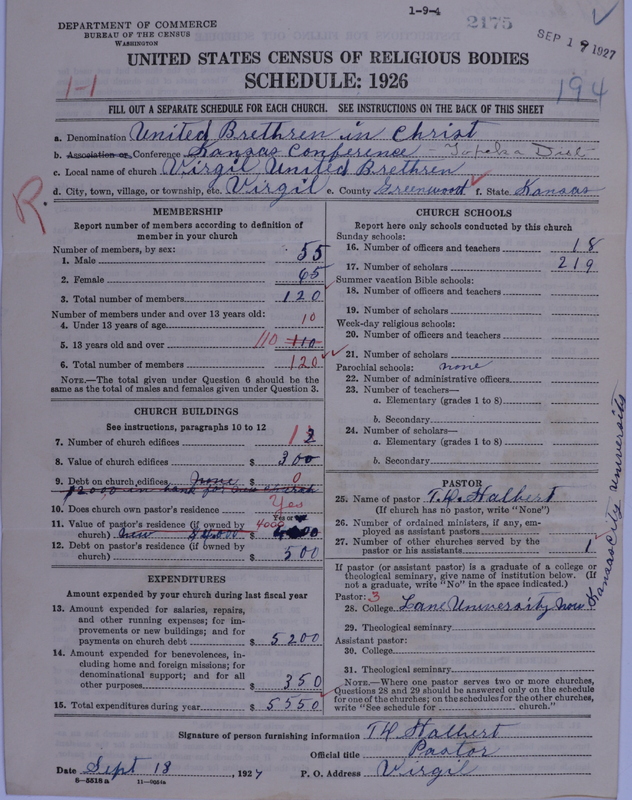 1-9-4
DEPARTMENT OF COMMERCE
BUREAU OF THE CENSUS
WASHINGTON
2175
SEP 19 1927
UNITED STATES CENSUS OF RELIGIOUS BODIES
SCHEDULE: 1926
1-1
194
FILL OUT A SEPARATE SCHEDULE FOR EACH CHURCH. SEE INSTRUCTIONS ON THE BACK OF THIS SHEET
a. Denomination United Brethren in Christ
b. Association or Conference Kansas Conference - Topeka Dist-
c. Local name of church Virgil United Brethren
d. City, town, village, or township, etc. Virgil e. County Greenwood f. State Kansas
R
MEMBERSHIP
Report number of members according to definition of
member in your church
Number of members, by sex:
1. Male 55
2. Female 65
3. Total number of members 120
Number of members under and over 13 years old:
4. Under 13 years of age 10
5. 13 years old and over 110 110
6. Total number of members 120
NOTE.—The total given under Question 6 should be
same as the total of males and females given under Question 3.
CHURCH BUILDINGS
See instructions, paragraphs 10 to 12
7. Number of church edifices 1
8. Value of church edifices $ 300
9. Debt on church edifices None $ 0
$2000 in bank for
10. Does church own pastor's residence? Yes
Yes or
11. Value of pastor's residence (if owned by 4000
church) new $4000 $
12. Debt on pastor's residence (if owned by
church) $ 500
EXPENDITURES
Amount expended by your church during last fiscal year
13. Amount expended for salaries, repairs,
and other running expenses; for im-
provements or new buildings; and for
payments on church debt $ 5200
14. Amount expended for benevolences, in-
cluding home and foreign missions; for
denominational support; and for all
other purposes $ 350
15. Total expenditures during year $ 5550
CHURCH SCHOOLS
Report here only schools conducted by this church
Sunday schools:
16. Number of officers and teachers 18
17. Number of scholars 219
Summer vacation Bible schools:
18. Number of officers and teachers
19. Number of scholars
Week-day religious schools:
20. Number of officers and teachers
21. Number of scholars
Parochial schools: none
22. Number of administrative officers
23. Number of teachers—
a. Elementary (grades 1 to 8)
b. Secondary
24. Number of scholars—
a. Elementary (grades 1 to 8)
b. Secondary
PASTOR
25. Name of pastor T.D. Halbert
(If church has no pastor, write "None")
26. Number of ordained ministers, if any, em-
ployed as assistant pastors
27. Number of other churches served by the
pastor or his assistants 1
If pastor (or assistant pastor) is a graduate of a college or
theological seminary, give name of institution below. (If
not a graduate, write "No" in the space indicated.)
Pastor: 3
28. College Lane University now
Kansas City University
29. Theological seminary
Assistant pastor:
30. College
31. Theological seminary
NOTE.—Where one pastor serves two or more churches,
Questions 28 and 29 should be answered only on the schedule
for one of the churches; on the schedules for the other churches,
write "See schedule for church."
Signature of person furnishing information TD Halbert
Official title Pastor
Date Sept 18, 1927 P. O. Address Virgil
8—5518 a